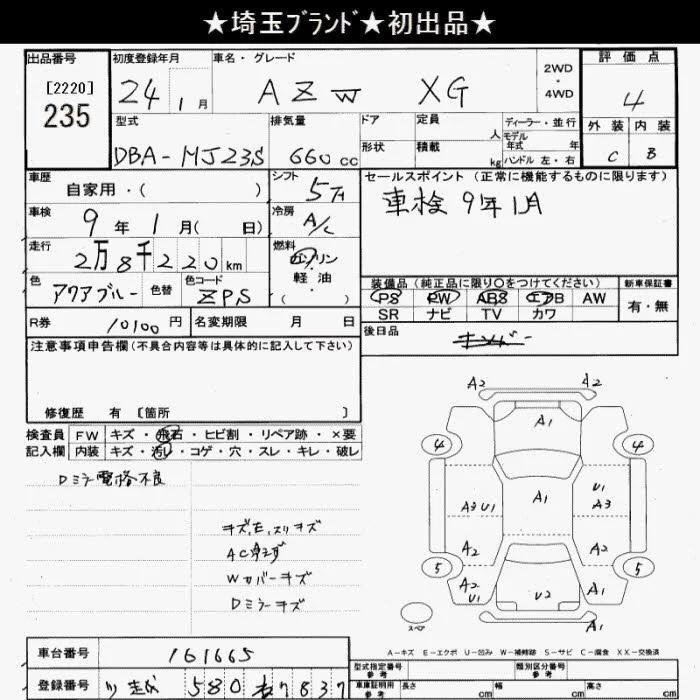 ★埼玉ﾌﾞﾗﾝﾄﾞ★初出品★
出品番号
[2220]
235
初度登録年月
24 1月
車名・グレード
AZW XG
2WD
・
4WD
評価点
4
外装 内装
C B
型式
DBA-MJ23S
排気量
660cc
ドア
定員 人
形状
積載 kg
ディーラー・並行
モデル年式 年式
ハンドル 左・右
車歴
自家用・( )
シフト
5
セールスポイント (正常に機能するものに限ります)
車検 9年1月
車検
9年 1月( 日)
冷房
A/C
走行
2万8千220km
燃料
ガソリン
軽・油
( )
色
アクアブルー
色替
色コード
ZPS
装備品(純正品に限り○をつけてください)
PS PW ABS エアB AW
SR ナビ TV カワ
新車保証書
有・無
R券
10100円
名変期限 月 日
後日品
注意事項申告欄(不具合内容等は具体的に記入して下さい)
修復歴 有 [箇所 ]
検査員
記入欄
FW キズ・飛石・ヒビ割・リペア跡・×要
内装 キズ・汚れ・コゲ・穴・スレ・キレ・破レ
Dミラー電格不良
キズ,E,スリキズ
Wカバーキズ
Dミラーキズ
A2 A2
A1
4 4
A3 U1
A1
U1
A3
A2
A2
5 5
A2
U1
U2
A1
A1
スペア
A-キズ E-エクボ U-凹み W-補修跡 S-サビ C-腐食 XX-交換済
車台番号
161665
登録番号
580 7837
型式指定番号
参考
類別区分番号
参考
車庫証明用
参考
長さ cm
幅 cm
高さ cm